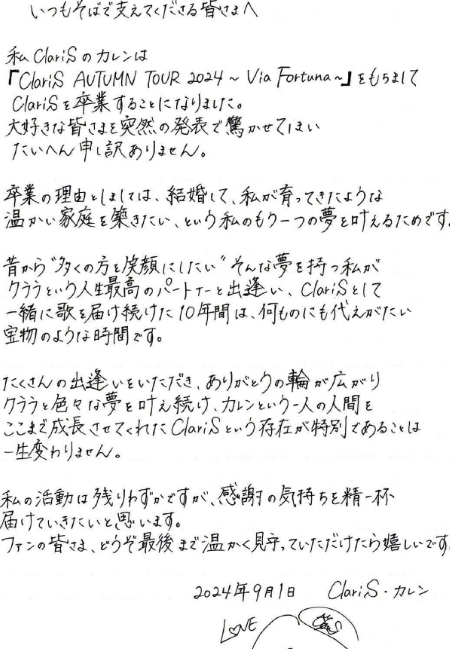 いつもそばで支えてくださる皆さまへ
私ClariSのカレンは
「ClariS AUTUMN TOUR 2024 ～ Via Fortuna～」をもちまして
ClariSを卒業することになりました。
大好きな皆さまを突然の発表で驚かせてしまい
たいへん申し訳ありません。
卒業の理由としましては、結婚して、私が育ってきたような
温かい家庭を築きたい、という私のもう一つの夢を叶えるためです。
昔から"多くの方を笑顔にしたい"そんな夢を持つ私が
クララという人生最高のパートナーと出逢い、ClariSとして
一緒に歌を届け続けた10年間は、何ものにも代えがたい
宝物のような時間です。
たくさんの出逢いをいただき、ありがとうの輪が広がり
クララと色々な夢を叶え続け、カレンという一人の人間を
ここまで成長させてくれたClariSという存在が特別であることは
一生変わりません。
私の活動は残りわずかですが、感謝の気持ちを精一杯
届けていきたいと思います。
ファンの皆さま、どうぞ最後まで温かく見守っていただけたら嬉しいです
2024年9月1日 ClariS・カレン
LOVE